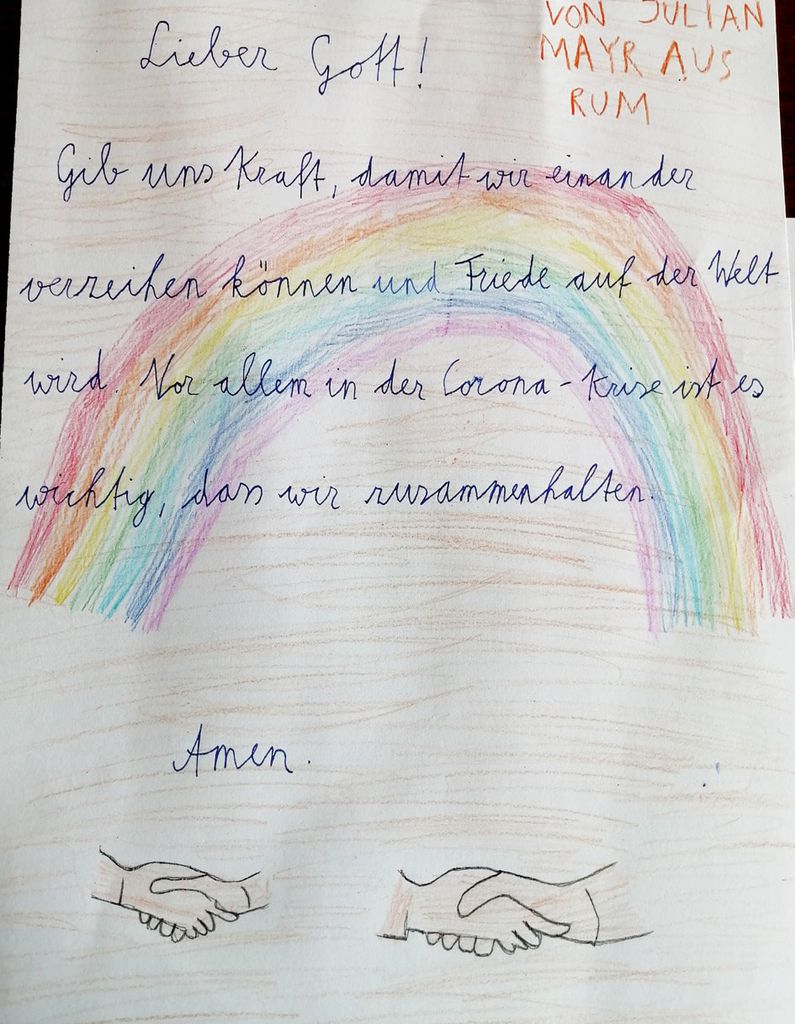 VON JULIAN
MAYR AUS
RUM
Lieber Gott!
Gib uns Kraft, damit wir einander
verzeihen können und Friede auf der Welt
wird. Vor allem in der Corona-Krise ist es
wichtig, dass wir zusammenhalten.
Amen.